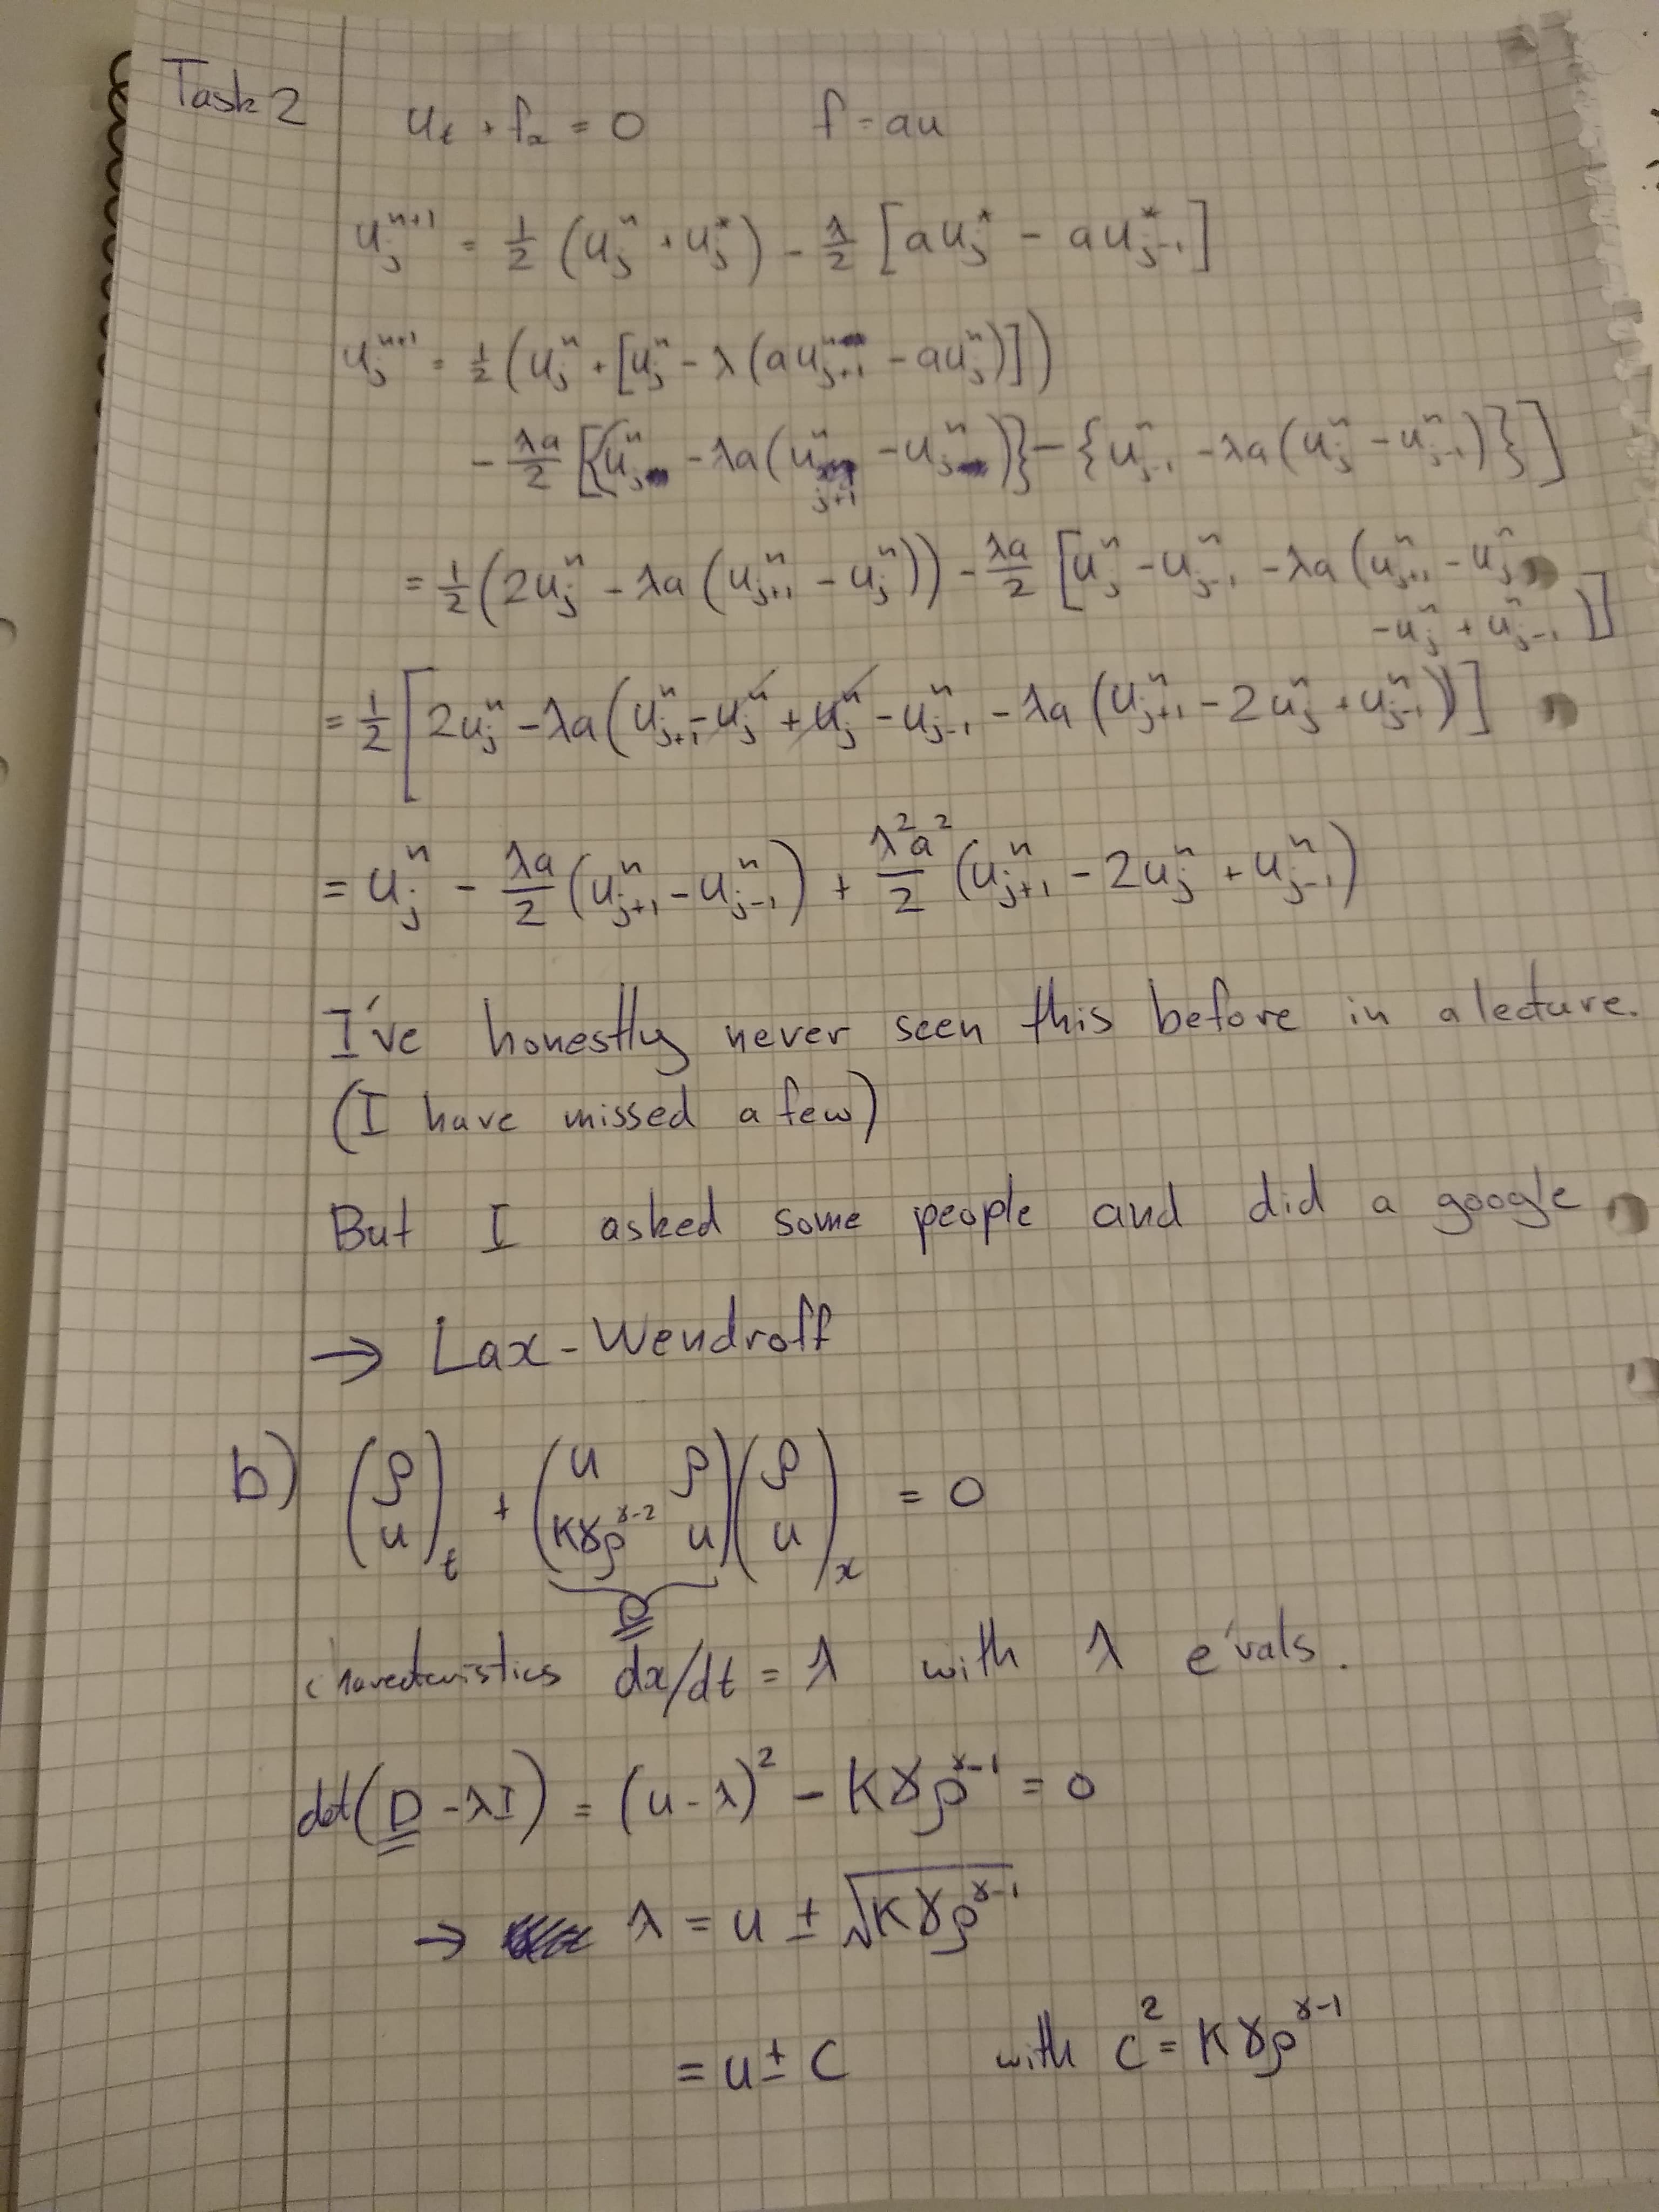 Task 2 u_t + f_x = 0 f = au
u_j^{n+1} = 1/2 (u_j^n + u_j^*) - λ/2 [au_j^* - au_{j-1}^*]
u_j^{n+1} = 1/2 (u_j^n + [u_j^n - λ(au_{j+1}^n - au_j^n)])
- λa/2 [{u_j^n - λa(u_{j+1}^n - u_j^n)} - {u_{j-1}^n - λa(u_j^n - u_{j-1}^n)}]
= 1/2 (2u_j^n - λa(u_{j+1}^n - u_j^n)) - λa/2 [u_j^n - u_{j-1}^n - λa(u_{j+1}^n - u_j^n
- u_j^n + u_{j-1}^n)]
= 1/2 [2u_j^n - λa(u_{j+1}^n - u_j^n + u_j^n - u_{j-1}^n - λa(u_{j+1}^n - 2u_j^n + u_{j-1}^n))]
= u_j^n - λa/2 (u_{j+1}^n - u_{j-1}^n) + λ²a²/2 (u_{j+1}^n - 2u_j^n + u_{j-1}^n)
I've honestly never seen this before in a lecture.
(I have missed a few)
But I asked some people and did a google
→ Lax-Wendroff
b) (ρ u)_t + (u ρ Kγρ^{γ-2} u)(ρ u)_x = 0
D
charecteristics dx/dt = λ with λ e'vals.
det(D - λI) = (u - λ)² - Kγρ^{γ-1} = 0
→ λ = u ± √Kγρ^{γ-1}
= u ± c with c² = Kγρ^{γ-1}